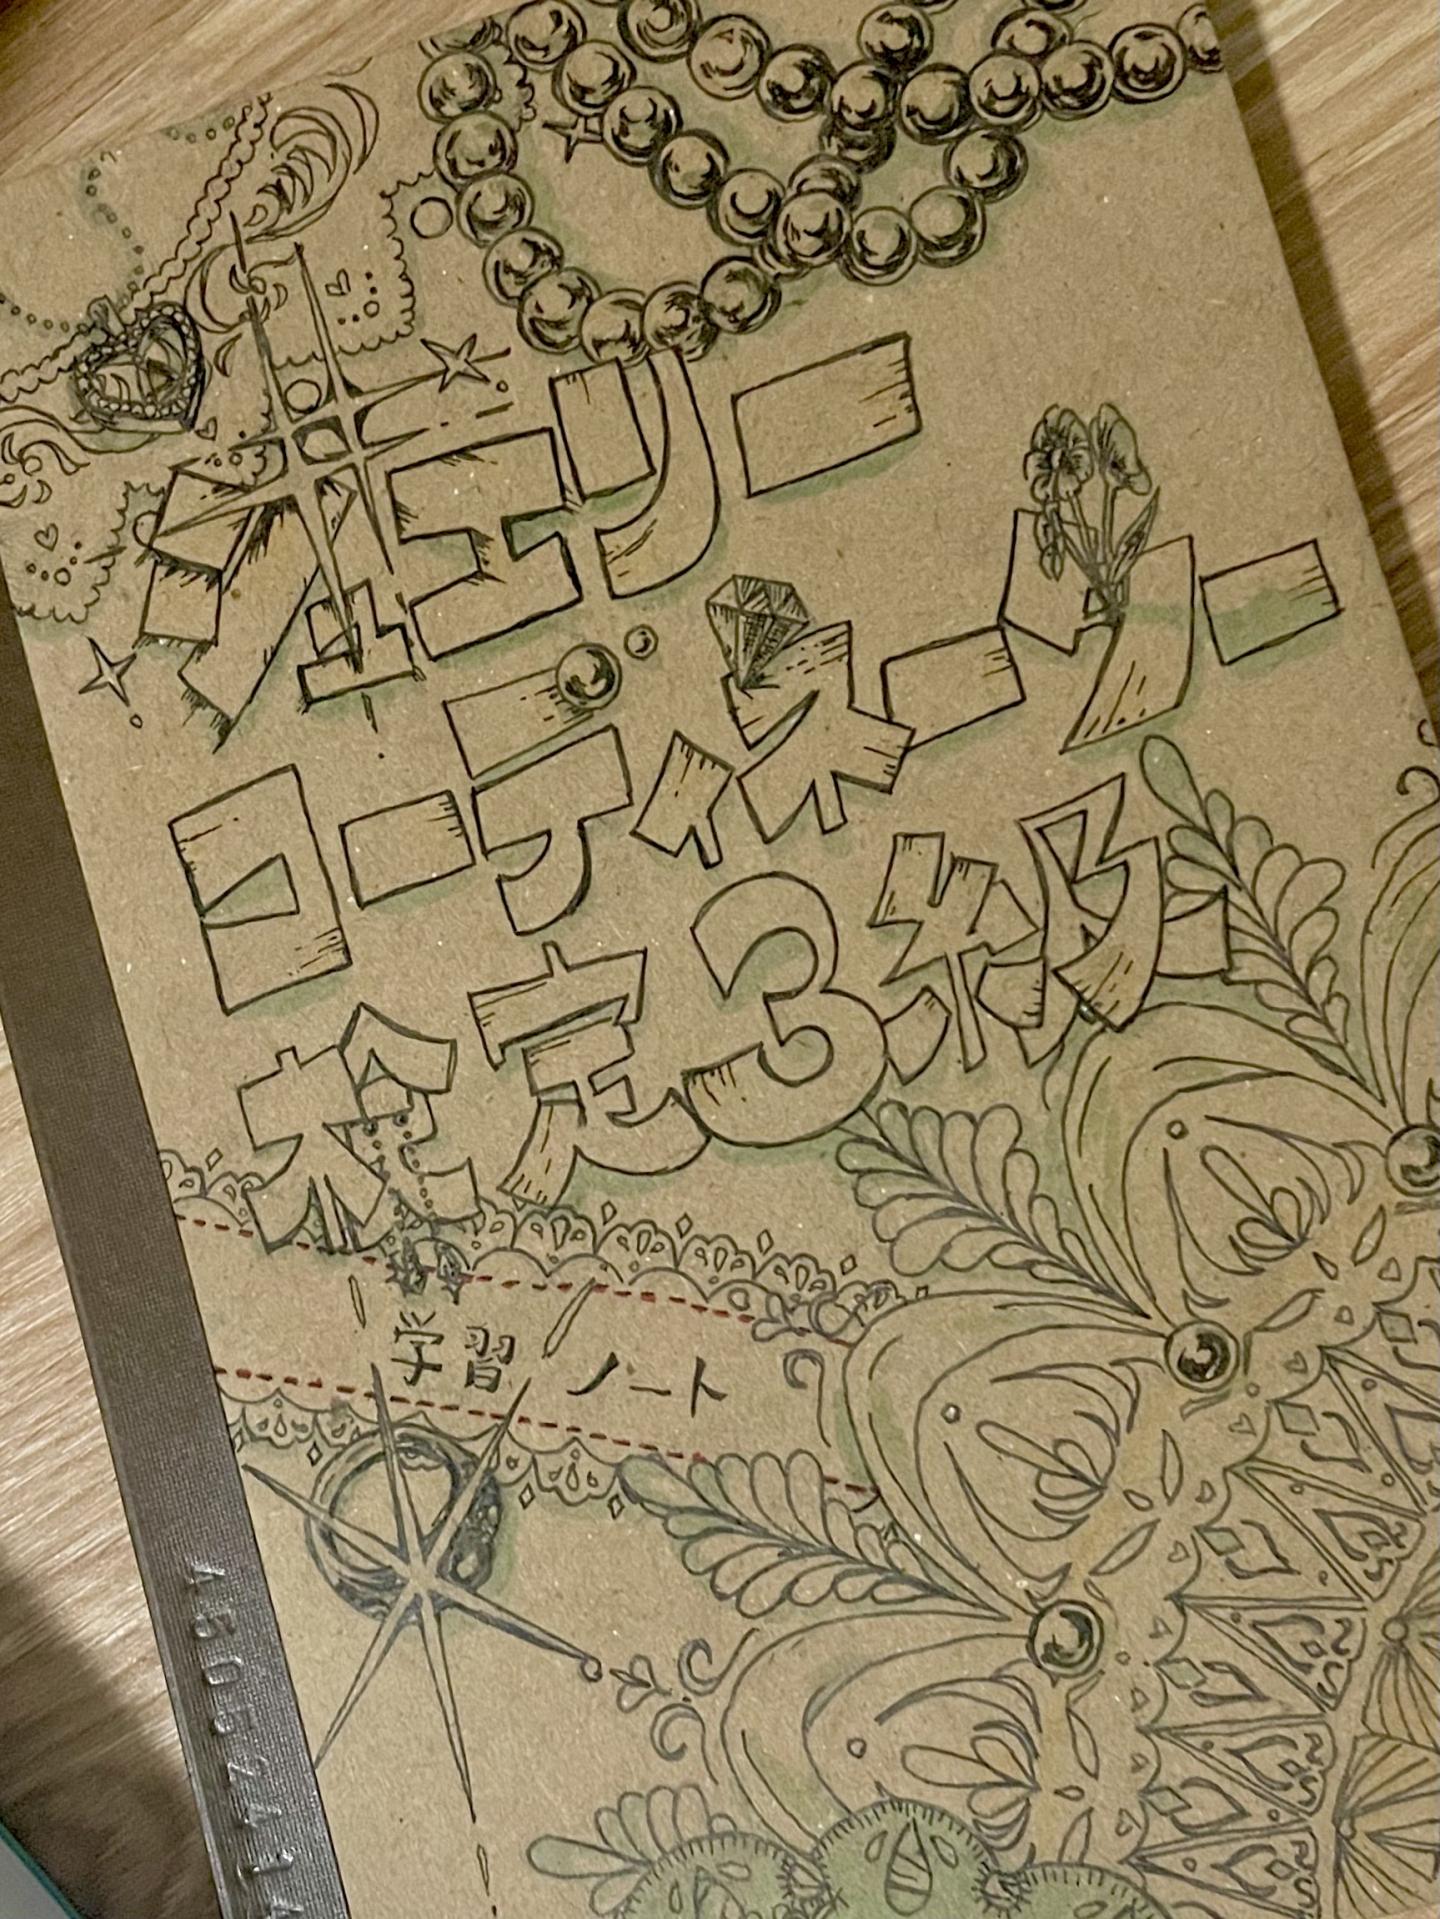 ジュエリー
コーディネーター
検定3級
学習ノート
4505241